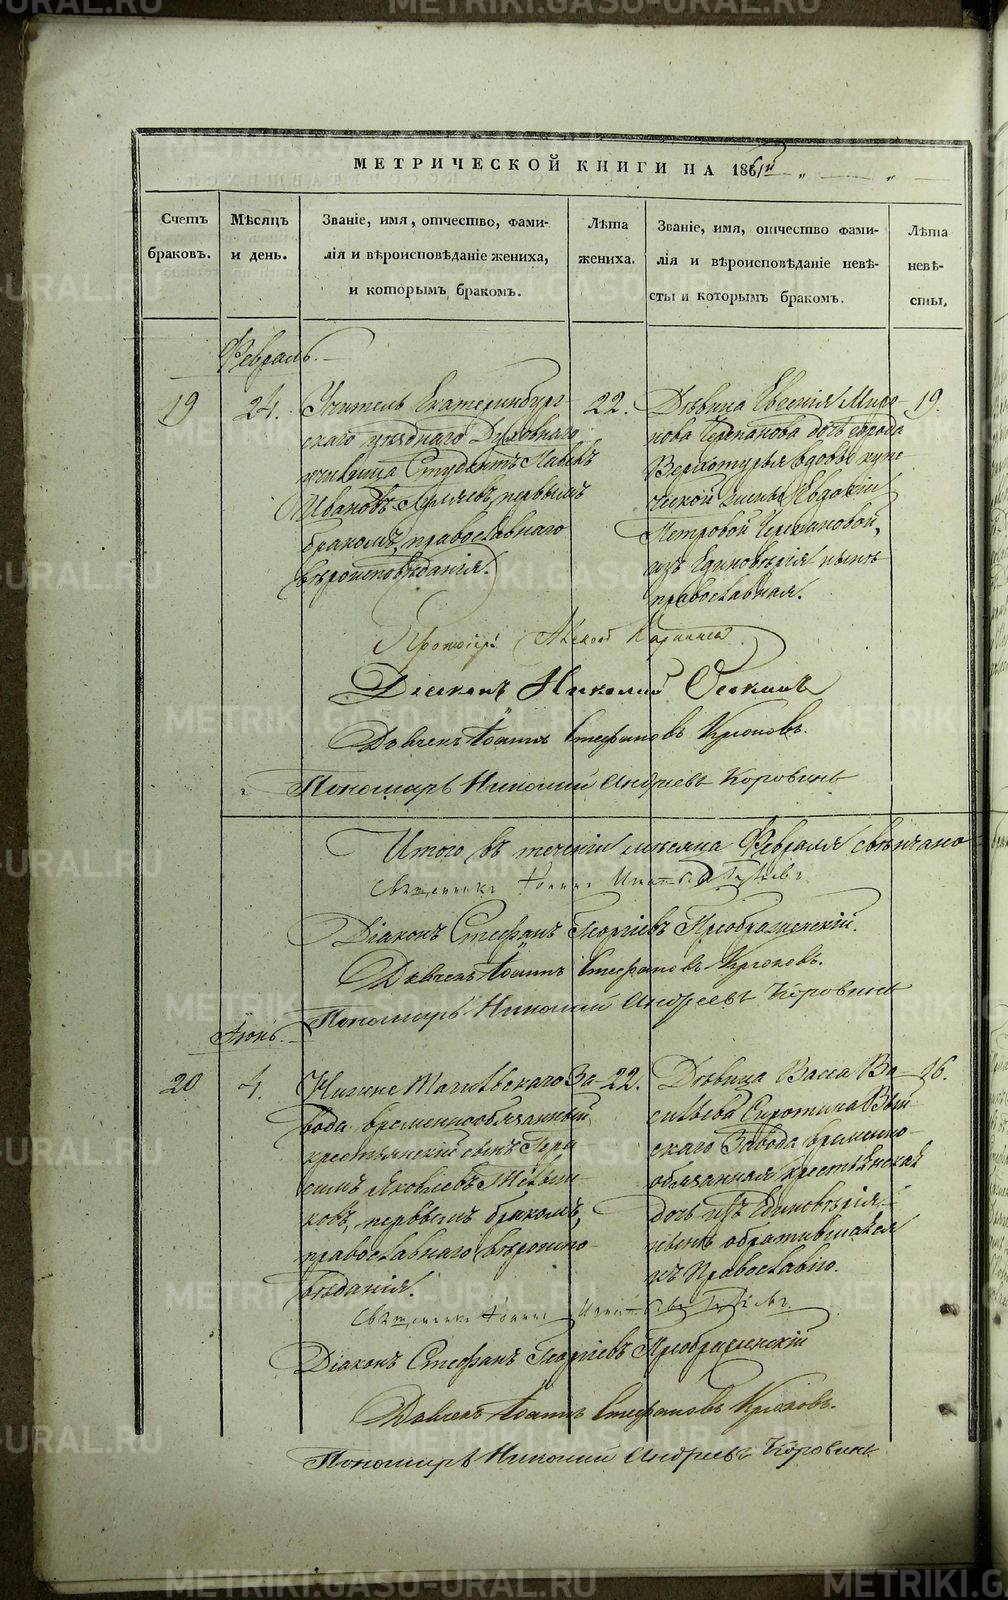 METRIKI.GASO-URAL.RU
МЕТРИЧЕСКОЙ КНИГИ НА 1861й
Счетъ браковъ.
Мѣсяцъ и день.
Званіе, имя, отчество, фами-
лія и вѣроисповѣданіе жениха,
и которымъ бракомъ.
Лѣта жениха.
Званіе, имя, отчество фами-
лія и вѣроисповѣданіе невѣ-
сты и которымъ бракомъ.
Лѣта невѣ-
сты.
Февраль.
19
24.
Учитель Екатеринбург-
скаго уѣзднаго Духовнаго
училища Студентъ Павелъ
Ивановъ первымъ
бракомъ, православнаго
вѣроисповѣданія.
22.
Дѣвица Евгенія Миро-
нова Черепанова дочь города
Верхотурья вдовы купе-
ческой жены
Петровой Черепановой,
изъ Единовѣрія нынѣ
православная.
19.
Протоіерей
Діаконъ Николай
Дьячекъ Іоаннъ Стефановъ Крюковъ.
Пономарь Николай Андреевъ Коровинъ
Итого въ теченіи мѣсяца Февраля свѣнчано
Священникъ Іоаннъ
Діаконъ Стефанъ Георгіевъ Преображенскій.
Дьячекъ Іоаннъ Стефановъ Крюковъ.
Пономарь Николай Андреевъ Коровинъ
Іюнь.
20
4.
Нижне Тагильскаго За-
вода временнообязанный
крестьянскій сынъ Гера-
симъ Яковлевъ
ковъ, первымъ бракомъ,
православнаго вѣроиспо-
вѣданія.
22.
Дѣвица Васса Ва-
сильева Сиротина Вый-
скаго Завода временно-
обязанная крестьянская
дочь изъ Единовѣрія,
нынѣ обратившаяся
къ Православію.
16.
Священникъ Іоаннъ
Діаконъ Стефанъ Георгіевъ Преображенскій
Дьячекъ Іоаннъ Стефановъ Крюковъ.
Пономарь Николай Андреевъ Коровинъ.